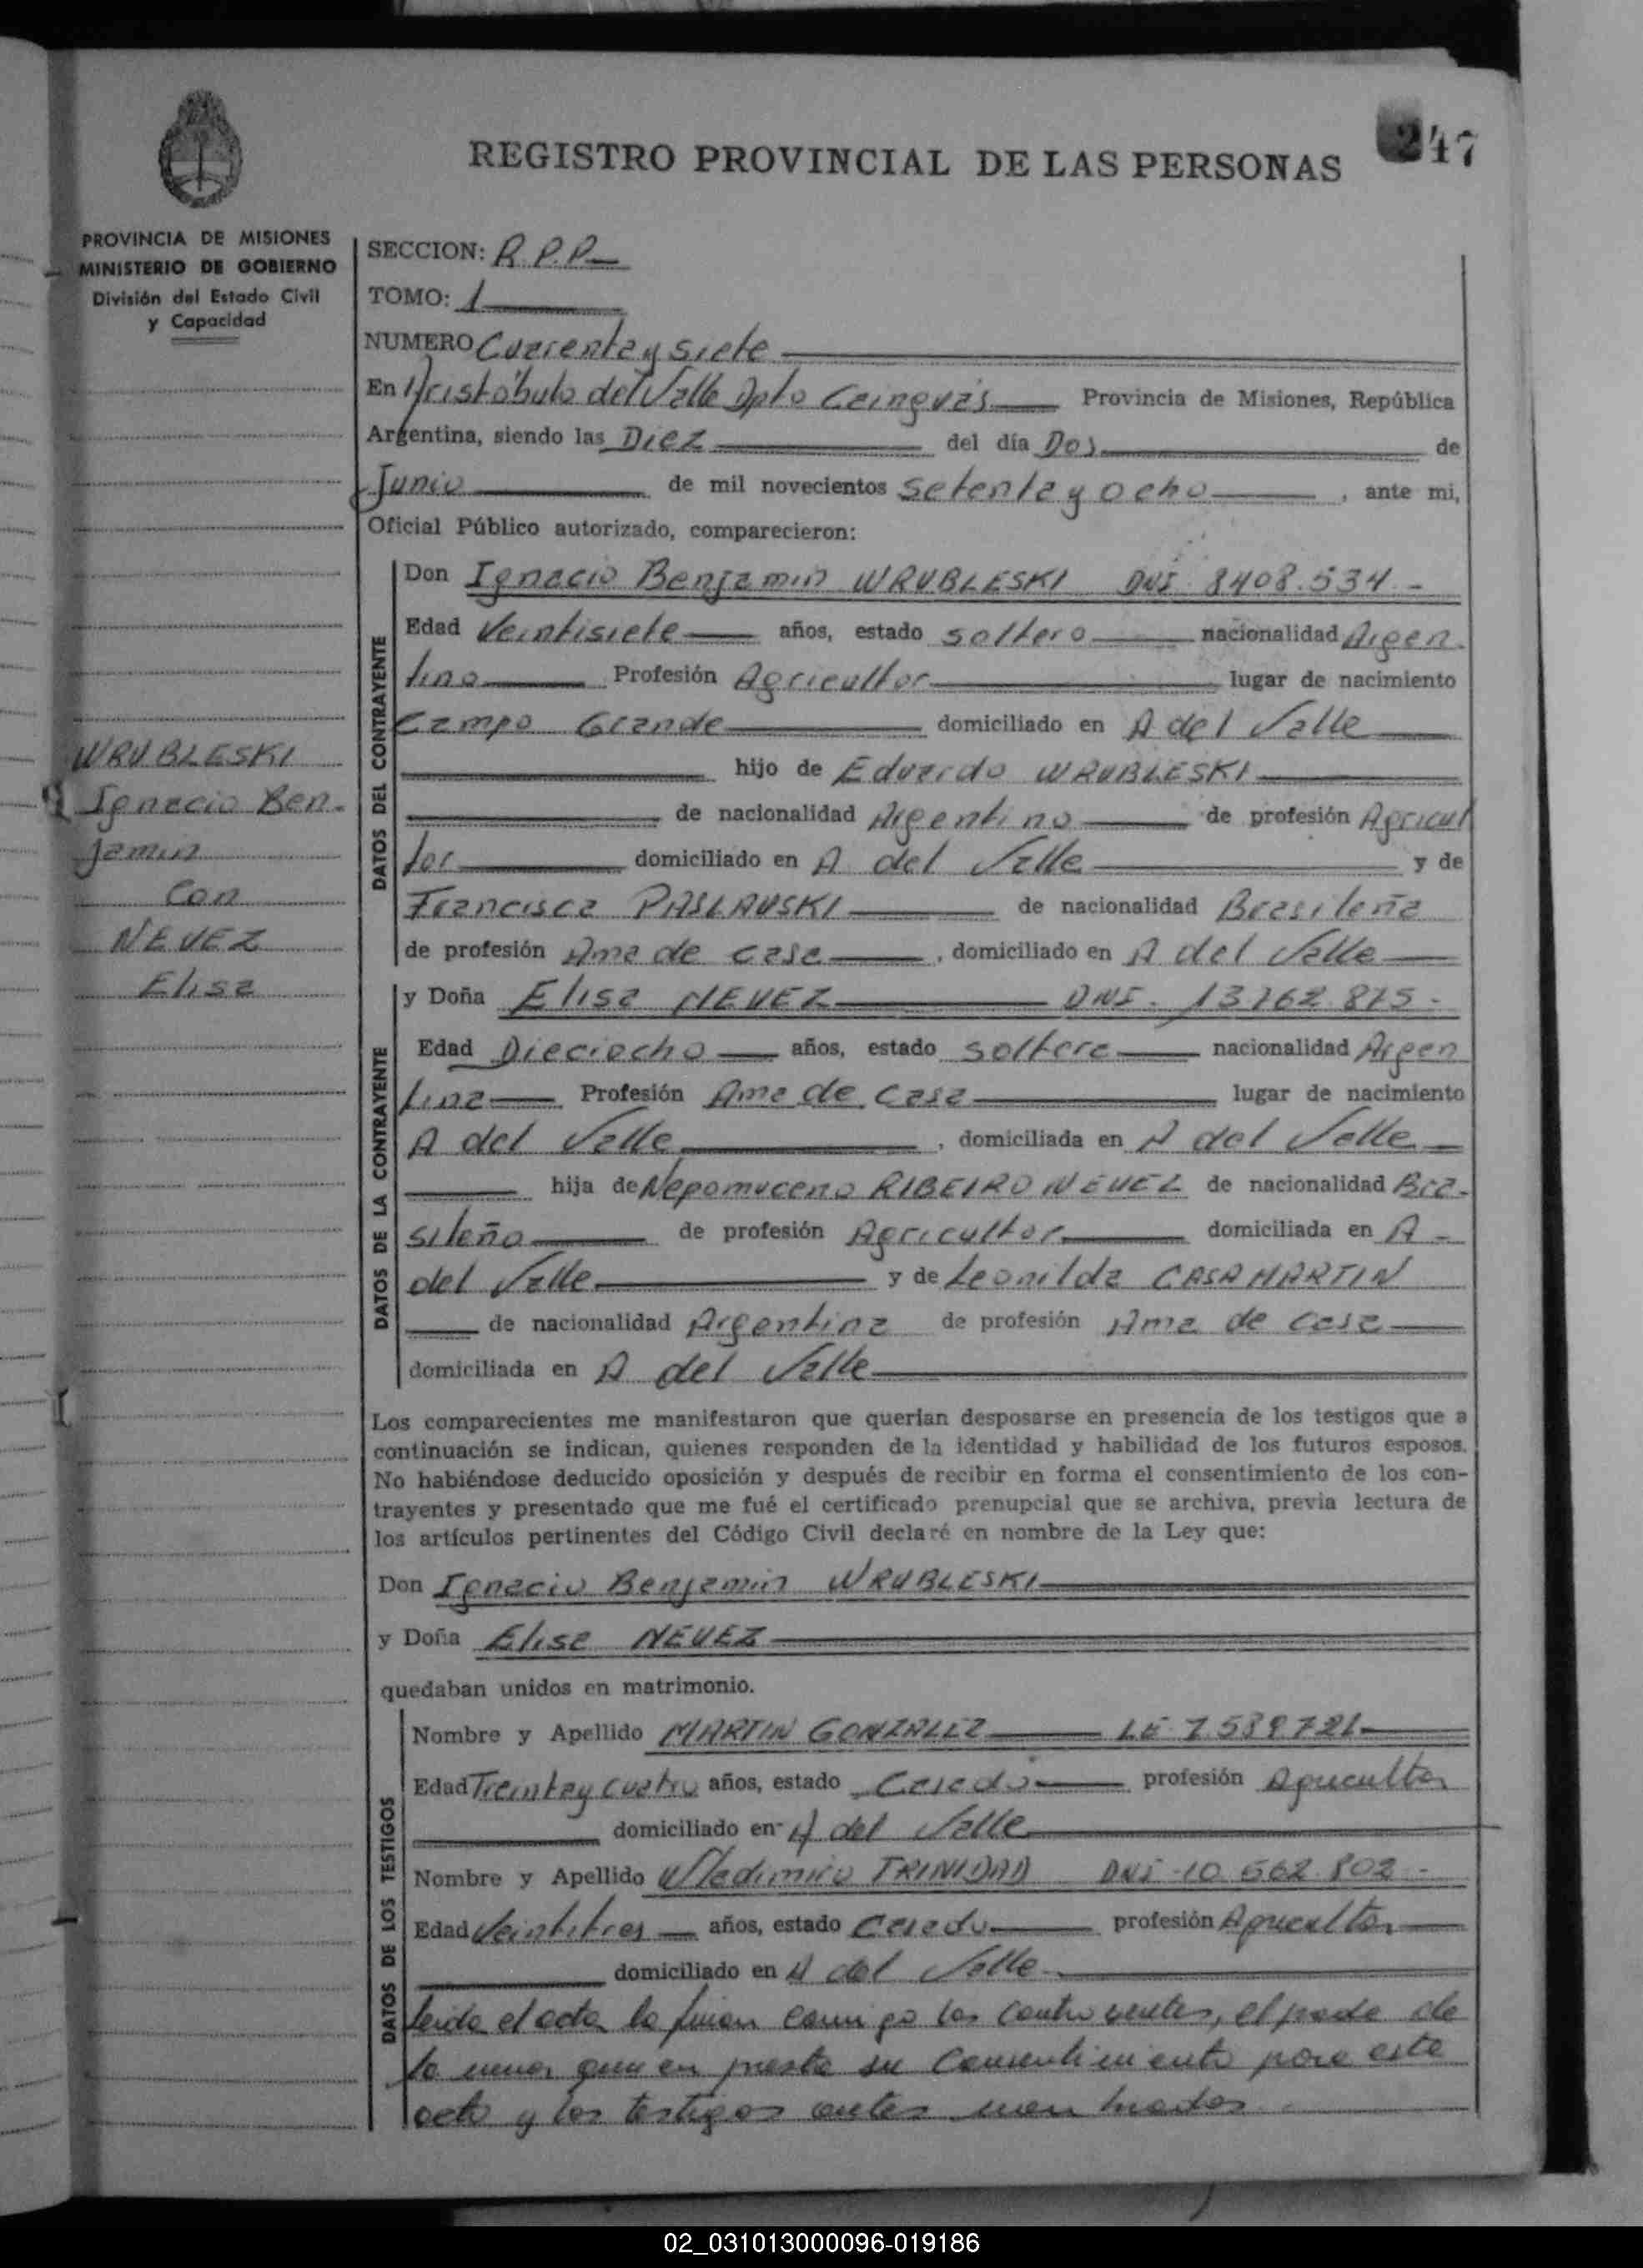 247
REGISTRO PROVINCIAL DE LAS PERSONAS
PROVINCIA DE MISIONES
MINISTERIO DE GOBIERNO
División del Estado Civil
y Capacidad
SECCION: R.P.P.
TOMO: 1
NUMERO Cuarenta y siete
En Aristóbulo del Valle Dpto Cainguás Provincia de Misiones, República
Argentina, siendo las Diez del día Dos de
Junio de mil novecientos setenta y ocho, ante mi,
Oficial Público autorizado, comparecieron:
DATOS DEL CONTRAYENTE
Don Ignacio Benjamin WRUBLESKI DNI 8408.534.-
Edad Veintisiete años, estado soltero nacionalidad Argen
tino Profesión Agricultor lugar de nacimiento
Campo Grande domiciliado en A del Valle
hijo de Eduardo WRUBLESKI
de nacionalidad Argentino de profesión Agricul
tor domiciliado en A del Valle y de
Francisca PASLAUSKI de nacionalidad Brasileña
de profesión Ama de casa, domiciliado en A del Valle
WRUBLESKI
Ignacio Ben-
jamin
Con
NEVEZ
Elisa
DATOS DE LA CONTRAYENTE
y Doña Elisa NEVEZ DNI. 13.762.875.-
Edad Dieciocho años, estado soltera nacionalidad Argen
tina Profesión Ama de Casa lugar de nacimiento
A del Valle, domiciliada en A del Valle
hija de Nepomuceno RIBEIRO NEVEZ de nacionalidad Bra-
sileño de profesión Agricultor domiciliada en A-
del Valle y de Leonilda CASAMARTIN
de nacionalidad Argentina de profesión Ama de casa
domiciliada en A del Valle
Los comparecientes me manifestaron que querían desposarse en presencia de los testigos que a
continuación se indican, quienes responden de la identidad y habilidad de los futuros esposos.
No habiéndose deducido oposición y después de recibir en forma el consentimiento de los con-
trayentes y presentado que me fué el certificado prenupcial que se archiva, previa lectura de
los artículos pertinentes del Código Civil declaré en nombre de la Ley que:
Don Ignacio Benjamin WRUBLESKI
y Doña Elisa NEVEZ
quedaban unidos en matrimonio.
DATOS DE LOS TESTIGOS
Nombre y Apellido MARTIN GONZALEZ LE 7.589.721
Edad Treinta y cuatro años, estado Casado profesión Agricultor
domiciliado en A del Valle
Nombre y Apellido Wladimiro TRINIDAD DNI 10.562.802.-
Edad Veintitres años, estado Casado profesión Agricultor
domiciliado en A del Valle
Leida el acta la firman conmigo los contrayentes, el padre de
la menor quien presta su consentimiento para este
acto y los testigos antes mencionados.
02_031013000096-019186